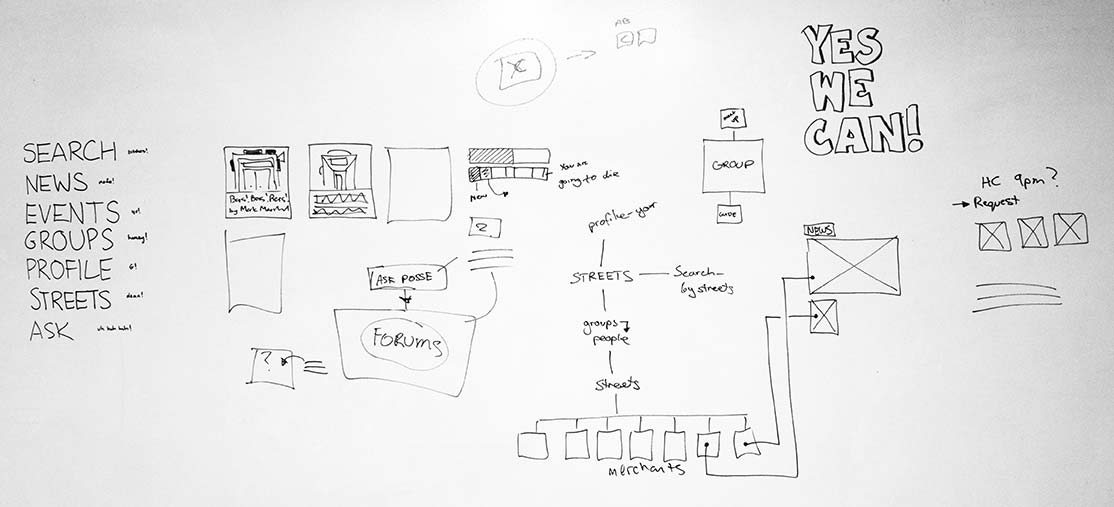 SEARCH
NEWS
EVENTS
GROUPS
PROFILE
STREETS
ASK
by Mark
You are
going to die
Now
?
ASK POSSE
FORUMS
?
AB
X
profile-your
STREETS
Search
by streets
groups
people
streets
merchants
GROUP
YES
WE
CAN!
NEWS
HC 9pm?
Request